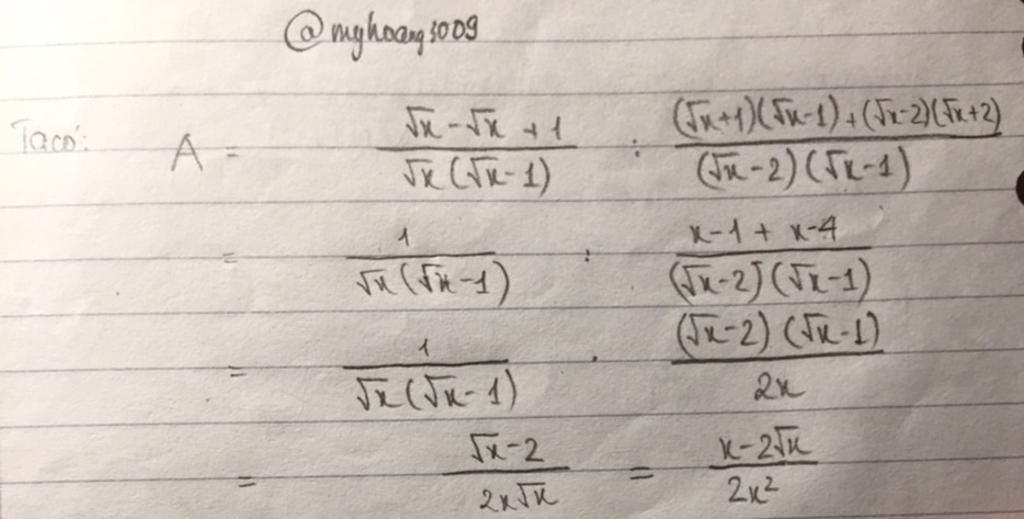 @myhoang3009
Ta có: A = (√x - √x + 1)/(√x(√x-1)) : ((√x+1)(√x-1)+(√x-2)(√x+2))/((√x-2)(√x-1))
= 1/(√x(√x-1)) : (x-1 + x-4)/((√x-2)(√x-1))
= 1/(√x(√x-1)) . ((√x-2)(√x-1))/(2x)
= (√x-2)/(2x√x) = (x-2√x)/(2x²)